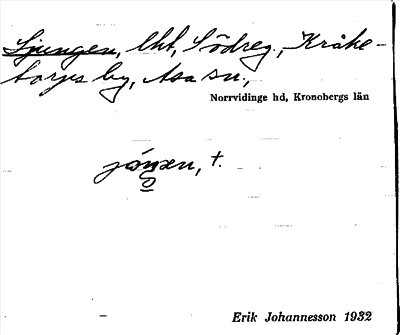 Ljungen, lht, Södreg., Kråke-
torps by, Asa sn.,
Norrvidinge hd, Kronobergs län
Erik Johannesson 1932